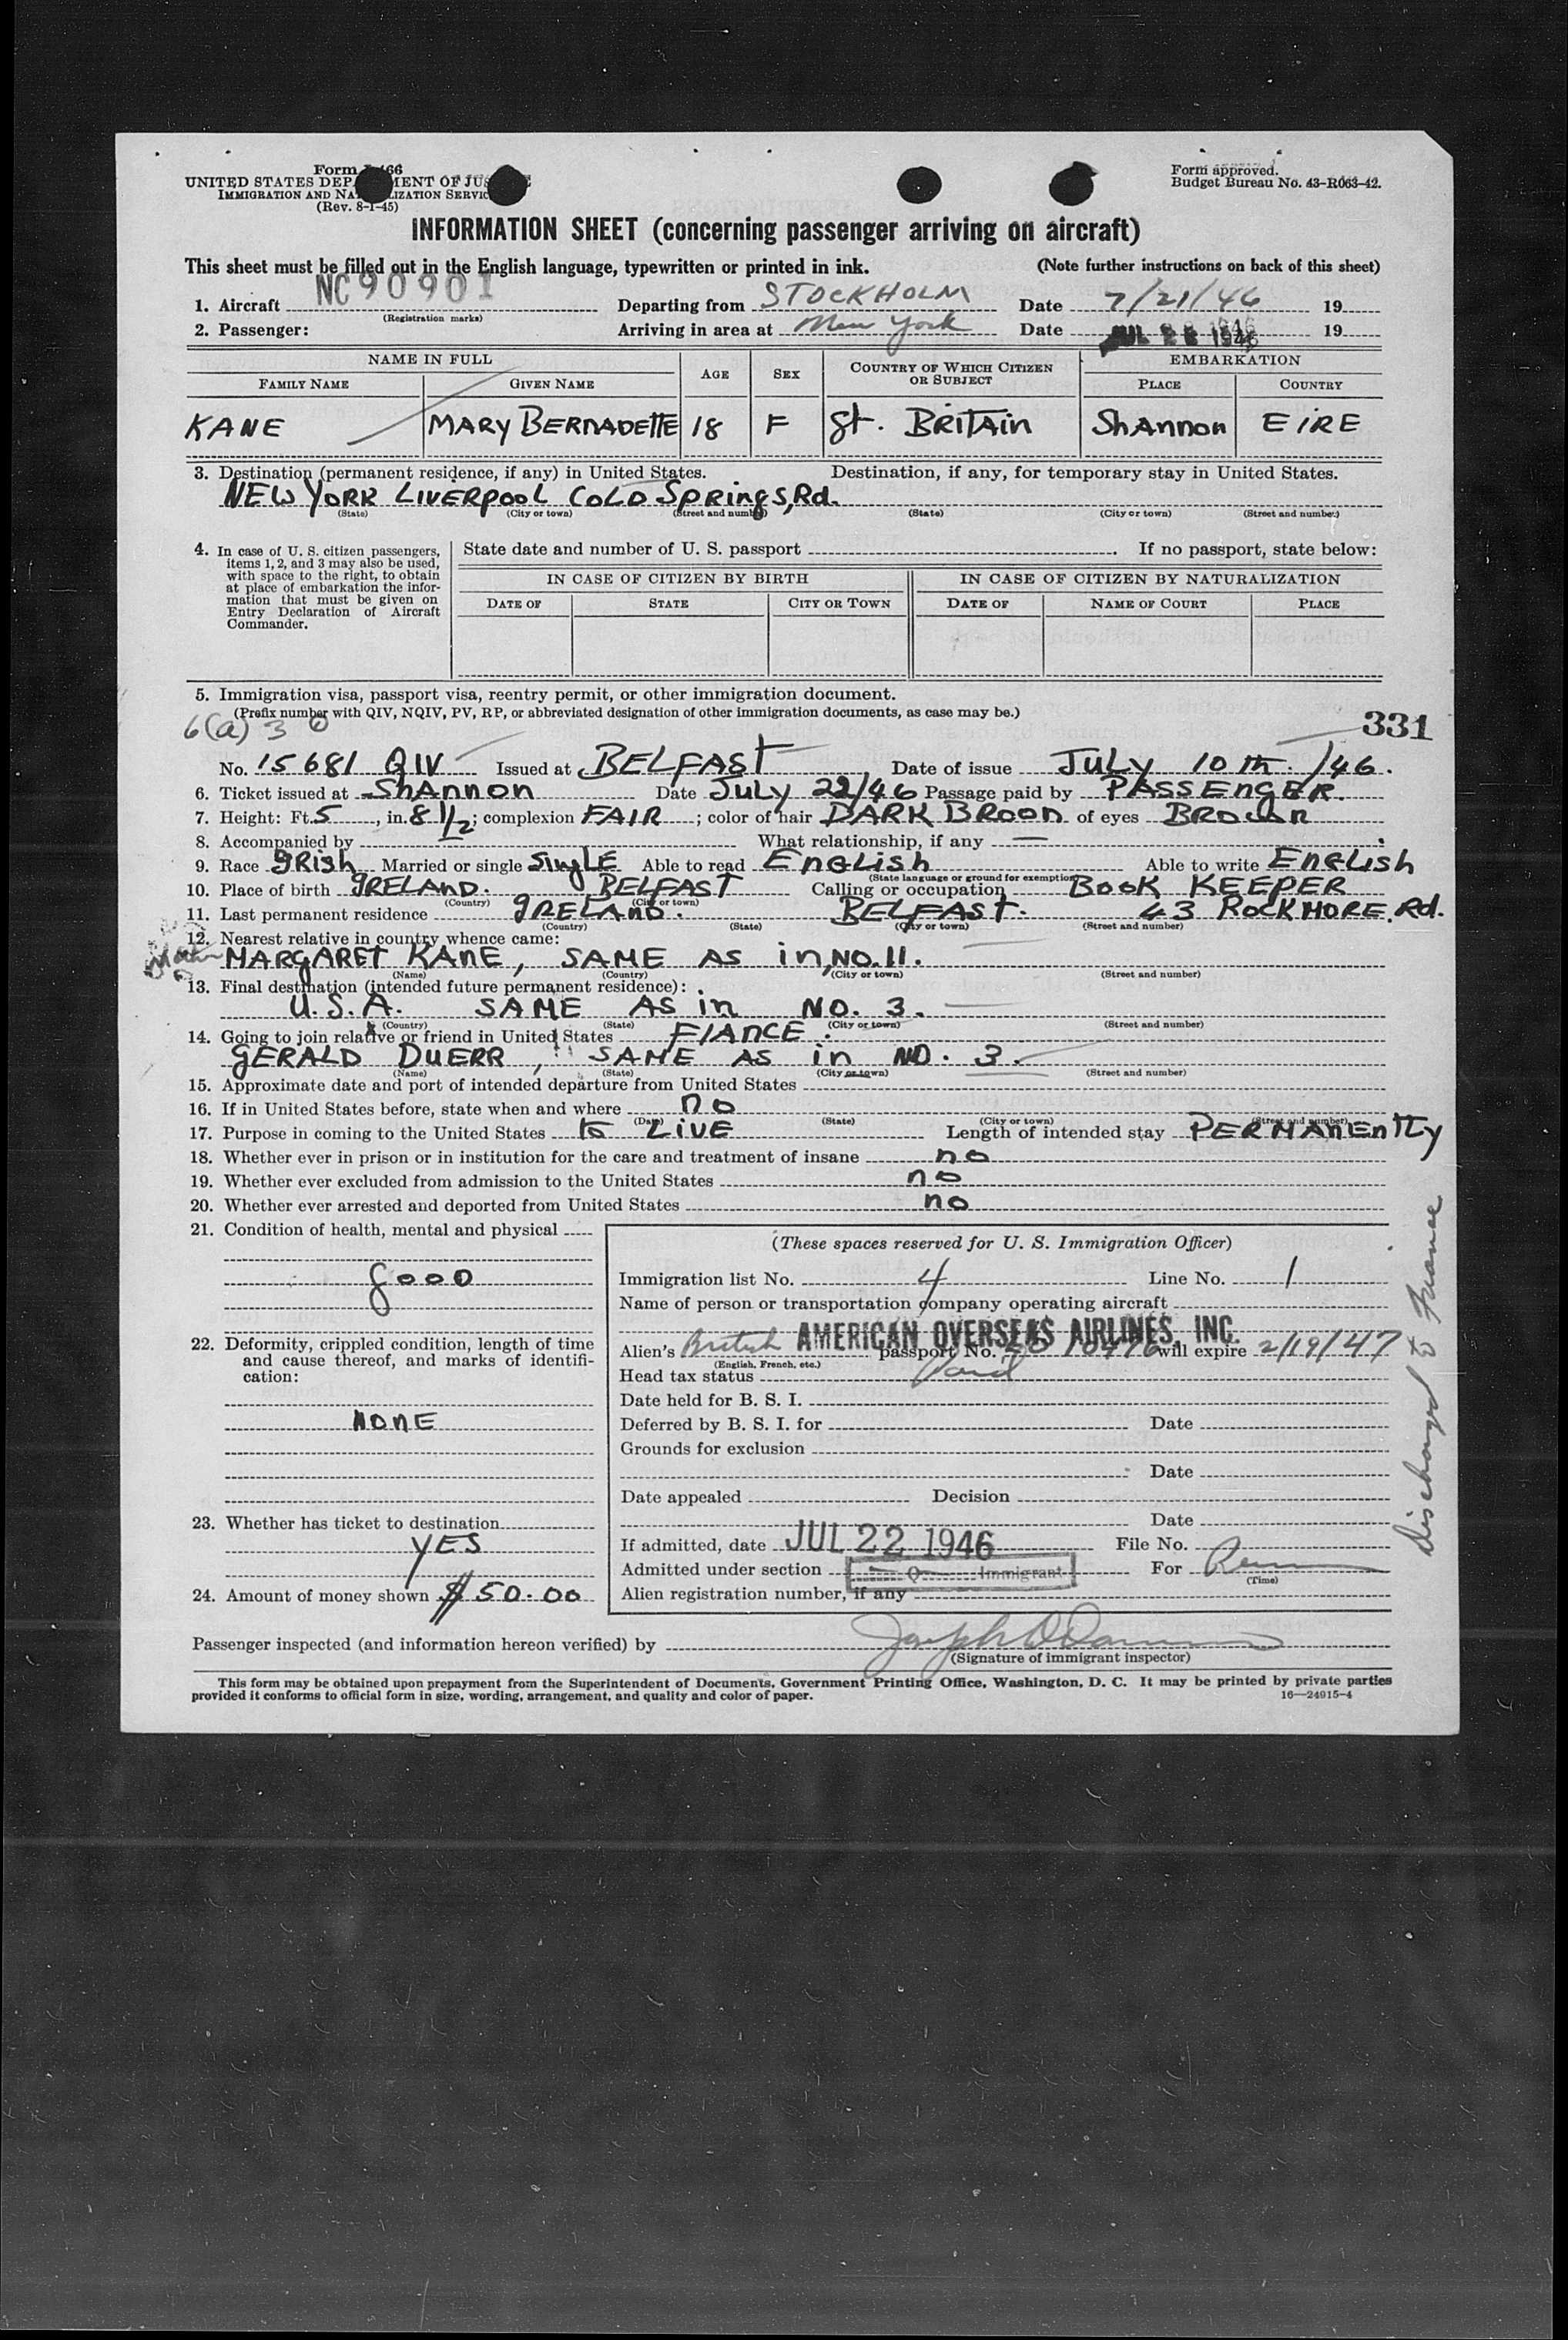 Form I-466
UNITED STATES DEPARTMENT OF JUSTICE
IMMIGRATION AND NATURALIZATION SERVICE
(Rev. 8-1-45)
Form approved.
Budget Bureau No. 43-R063-42.
INFORMATION SHEET (concerning passenger arriving on aircraft)
This sheet must be filled out in the English language, typewritten or printed in ink. (Note further instructions on back of this sheet)
1. Aircraft NC90901 Departing from STOCKHOLM Date 7/21/46 19
(Registration marks)
2. Passenger: Arriving in area at New York Date JUL 22 1946 19
NAME IN FULL AGE SEX COUNTRY OF WHICH CITIZEN OR SUBJECT EMBARKATION
FAMILY NAME GIVEN NAME PLACE COUNTRY
KANE MARY BERNADETTE 18 F Gt. BRITAIN SHANNON EIRE
3. Destination (permanent residence, if any) in United States. Destination, if any, for temporary stay in United States.
NEW YORK LIVERPOOL COLD SPRINGS, Rd.
(State) (City or town) (Street and number) (State) (City or town) (Street and number)
4. In case of U. S. citizen passengers, items 1, 2, and 3 may also be used, with space to the right, to obtain at place of embarkation the information that must be given on Entry Declaration of Aircraft Commander.
State date and number of U. S. passport If no passport, state below:
IN CASE OF CITIZEN BY BIRTH IN CASE OF CITIZEN BY NATURALIZATION
DATE OF STATE CITY OR TOWN DATE OF NAME OF COURT PLACE
5. Immigration visa, passport visa, reentry permit, or other immigration document.
(Prefix number with QIV, NQIV, PV, RP, or abbreviated designation of other immigration documents, as case may be.)
6(a) 3
331
No. 15681 QIV Issued at BELFAST Date of issue JULY 10th. /46.
6. Ticket issued at SHANNON Date JULY 22/46 Passage paid by PASSENGER.
7. Height: Ft. 5, in. 8 1/2; complexion FAIR; color of hair DARK BROON of eyes BROWN
8. Accompanied by What relationship, if any —
9. Race IRISH Married or single SINGLE Able to read ENGLISH Able to write ENGLISH
(State language or ground for exemption)
10. Place of birth IRELAND. BELFAST Calling or occupation BOOK KEEPER
(Country) (City or town)
11. Last permanent residence IRELAND. BELFAST. 43 ROCKMORE Rd.
(Country) (State) (City or town) (Street and number)
12. Nearest relative in country whence came:
Mother MARGARET KANE, SAME AS in, NO. 11.
(Name) (Country) (City or town) (Street and number)
13. Final destination (intended future permanent residence):
U.S.A. SAME AS in NO. 3.
(Country) (State) (City or town) (Street and number)
14. Going to join relative or friend in United States FIANCE.
GERALD DUERR, SAME AS in NO. 3.
(Name) (State) (City or town) (Street and number)
15. Approximate date and port of intended departure from United States
16. If in United States before, state when and where no
(Date) (State) (City or town) (Street and number)
17. Purpose in coming to the United States to LIVE Length of intended stay PERMANENTLY
18. Whether ever in prison or in institution for the care and treatment of insane no
19. Whether ever excluded from admission to the United States no
20. Whether ever arrested and deported from United States no
21. Condition of health, mental and physical
GOOD
22. Deformity, crippled condition, length of time and cause thereof, and marks of identification:
NONE
23. Whether has ticket to destination
YES
24. Amount of money shown $50.00
(These spaces reserved for U. S. Immigration Officer)
Immigration list No. 4 Line No. 1
Name of person or transportation company operating aircraft
AMERICAN OVERSEAS AIRLINES, INC.
Alien's British passport No. will expire 2/19/47
(English, French, etc.)
Head tax status Paid
Date held for B. S. I.
Deferred by B. S. I. for Date
Grounds for exclusion
Date
Date appealed Decision
Date
If admitted, date JUL 22 1946 File No.
Admitted under section Q Immigrant For Perm
(Time)
Alien registration number, if any
Discharged to Fiance
Passenger inspected (and information hereon verified) by
(Signature of immigrant inspector)
This form may be obtained upon prepayment from the Superintendent of Documents, Government Printing Office, Washington, D. C. It may be printed by private parties
provided it conforms to official form in size, wording, arrangement, and quality and color of paper. 16—24915-4